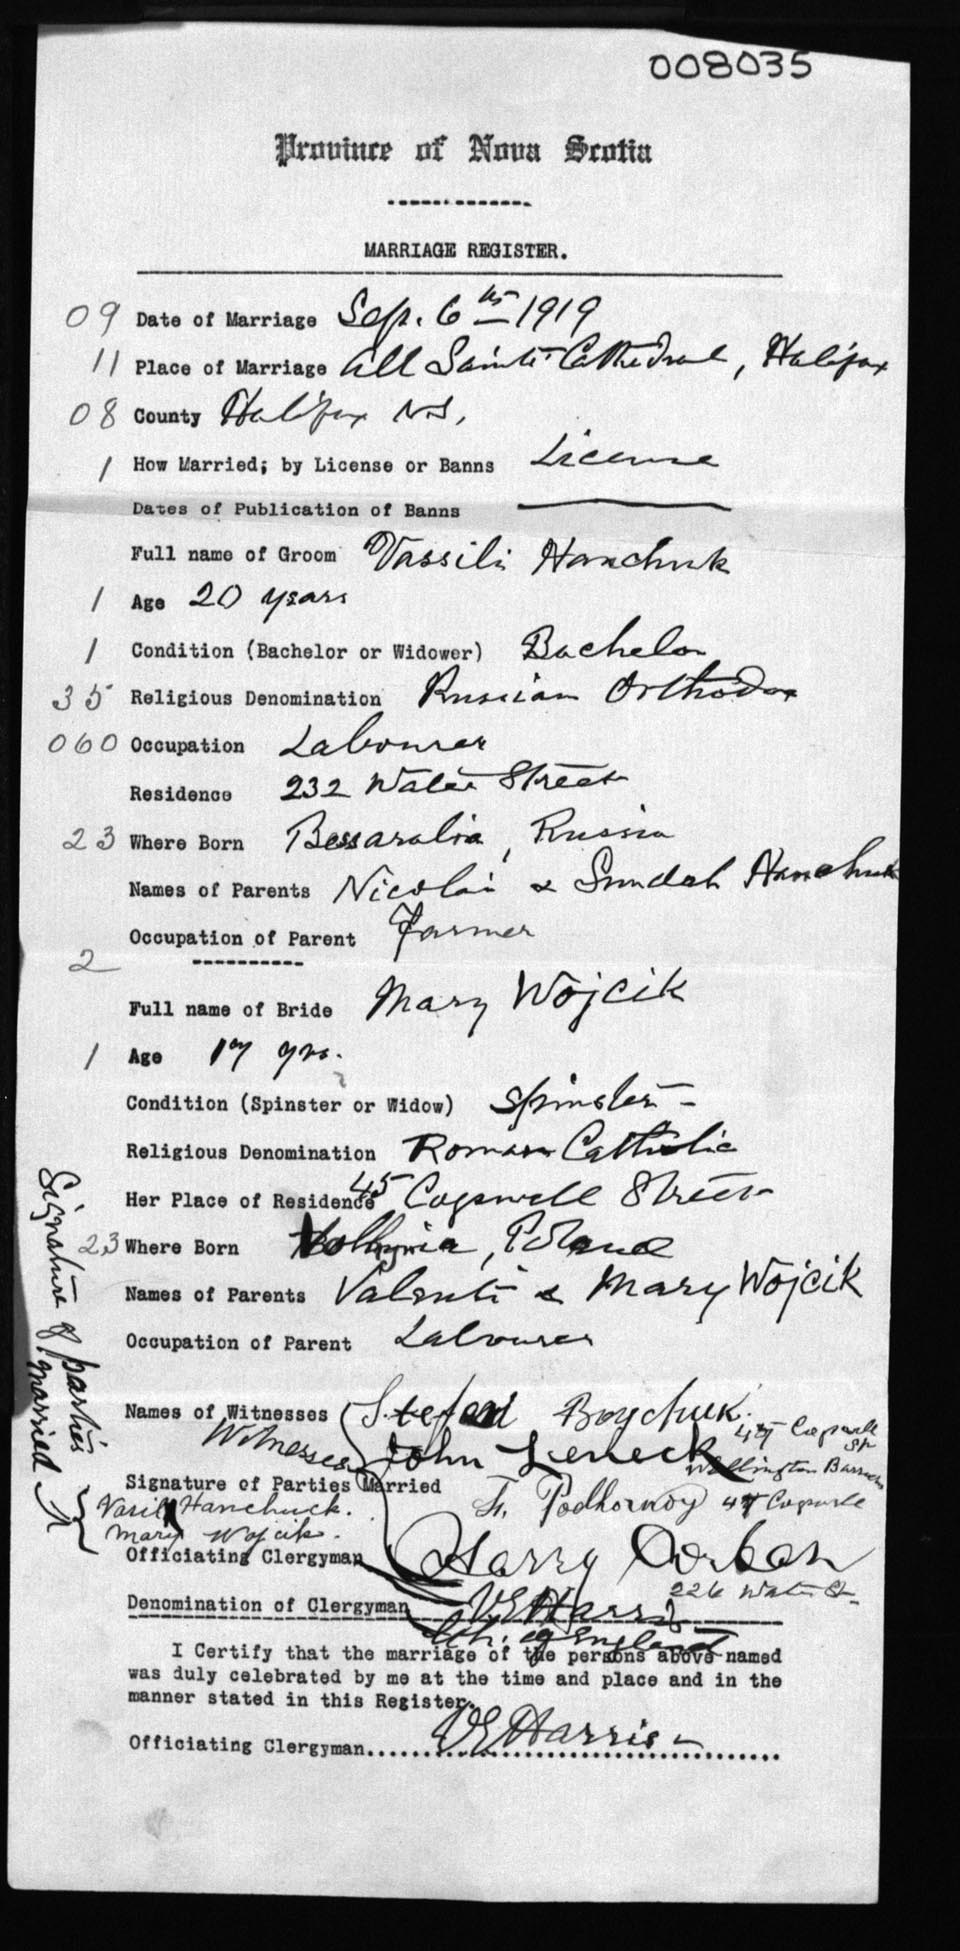 008035
Province of Nova Scotia
MARRIAGE REGISTER.
09 Date of Marriage Sep. 6th 1919
11 Place of Marriage All Saints Cathedral, Halifax
08 County Halifax N.S.
1 How Married; by License or Banns License
Dates of Publication of Banns
Full name of Groom Vassili Hanchuk
1 Age 20 years
1 Condition (Bachelor or Widower) Bachelor
35 Religious Denomination Russian Orthodox
060 Occupation Labourer
Residence 232 Water Street
23 Where Born Bessarabia, Russia
Names of Parents Nicolai & Hanchuk
Occupation of Parent Farmer
2
Full name of Bride Mary Wojcik
1 Age 17 yrs.
Condition (Spinster or Widow) Spinster -
Religious Denomination Roman Catholic
Her Place of Residence 45 Cogswell Street
23 Where Born Volhynia, Poland
Names of Parents Valenti & Mary Wojcik
Occupation of Parent Labourer
Names of Witnesses Stefan Boychuk. 47 Cogswell St
Witnesses John Leneck Wellington Barracks
Signature of Parties Married
Signature of parties married
Vasili Hanchuck. Podhornoy 47 Cogswell
Mary Wojcik.
Officiating Clergyman Harry Corban
226 Water St
Denomination of Clergyman V E Harris
Ch. of England
I Certify that the marriage of the persons above named
was duly celebrated by me at the time and place and in the
manner stated in this Register.
Officiating Clergyman V E Harris